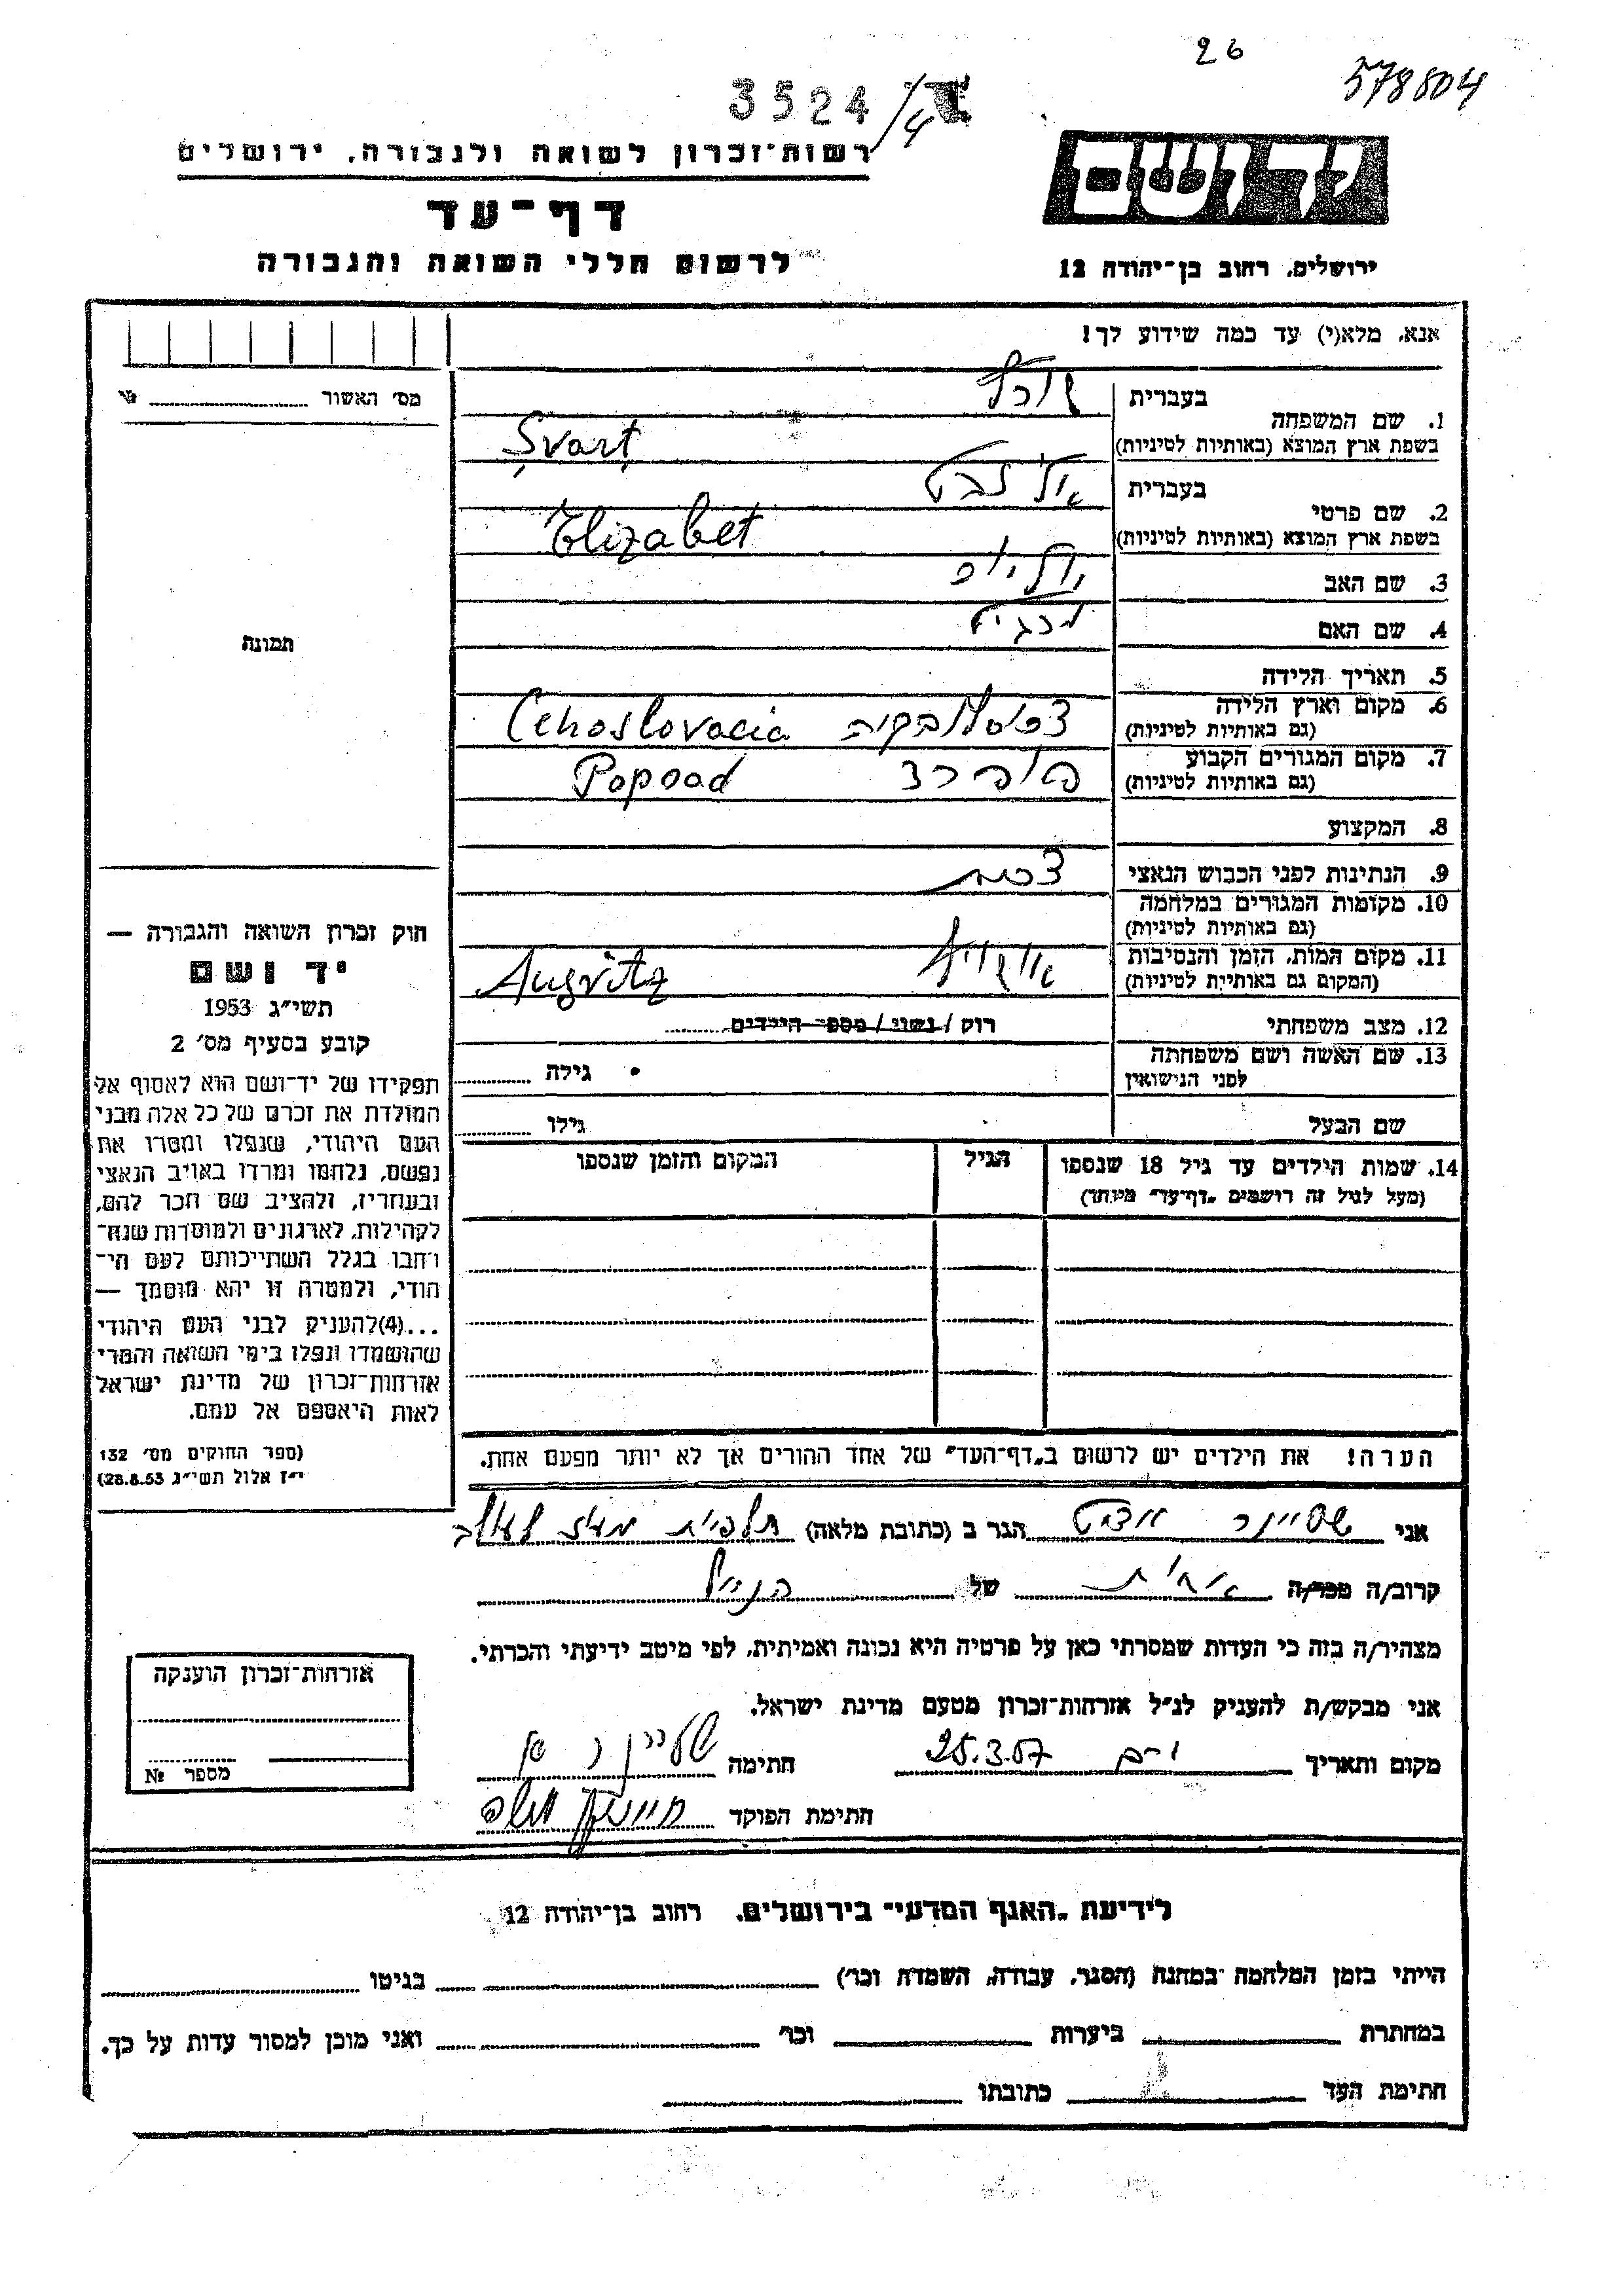 26
578804
3524/4
רשות־זכרון לשואה ולגבורה, ירושלים
דף־עד
לרשום חללי השואה והגבורה
יד ושם
ירושלים, רחוב בן־יהודה 12
אנא, מלא(י) עד כמה שידוע לך!
מס׳ האשור
1. שם המשפחה
בעברית
בשפת ארץ המוצא (באותיות לטיניות) Şvarţ
2. שם פרטי
בעברית אליזבט
בשפת ארץ המוצא (באותיות לטיניות) Elizabet
3. שם האב
4. שם האם
5. תאריך הלידה
6. מקום וארץ הלידה
(גם באותיות לטיניות) Cehoslovacia
7. מקום המגורים הקבוע
(גם באותיות לטיניות) Popoad
8. המקצוע
9. הנתינות לפני הכבוש הנאצי
10. מקומות המגורים במלחמה
(גם באותיות לטיניות)
11. מקום המות, הזמן והנסיבות
(המקום גם באותיות לטיניות) Ausvitz
12. מצב משפחתי רוק / נשוי / מספר הילדים
13. שם האשה ושם משפחתה
לפני הנישואין גילה
שם הבעל גילו
14. שמות הילדים עד גיל 18 שנספו
(מעל לגיל זה רושמים „דף־עד” מיוחד)
הגיל
המקום והזמן שנספו
הערה! את הילדים יש לרשום ב„דף־העד” של אחד ההורים אך לא יותר מפעם אחת.
תמונה
חוק זכרון השואה והגבורה —
יד ושם
תשי״ג 1953
קובע בסעיף מס׳ 2
תפקידו של יד־ושם הוא לאסוף אל
המולדת את זכרם של כל אלה מבני
העם היהודי, שנפלו ומסרו את
נפשם, נלחמו ומרדו באויב הנאצי
ובעוזריו, ולהציב שם וזכר להם,
לקהילות, לארגונים ולמוסדות שנח־
רבו בגלל השתייכותם לעם הי־
הודי, ולמטרה זו יהא מוסמך —
...(4)להעניק לבני העם היהודי
שהושמדו ונפלו בימי השואה והמרי
אזרחות־זכרון של מדינת ישראל
לאות היאספם אל עמם.
(ספר החוקים מס׳ 132
י״ז אלול תשי״ג 28.8.53)
אני שטיינר הגר ב (כתובת מלאה)
קרוב/ה מכר/ה אחות של הנ״ל
מצהיר/ה בזה כי העדות שמסרתי כאן על פרטיה היא נכונה ואמיתית, לפי מיטב ידיעתי והכרתי.
אני מבקש/ת להעניק לנ״ל אזרחות־זכרון מטעם מדינת ישראל.
מקום ותאריך 25.3.57 חתימה
חתימת הפוקד
אזרחות־זכרון הוענקה
מספר №
לידיעת „האגף המדעי” בירושלים, רחוב בן־יהודה 12
הייתי בזמן המלחמה במחנה (הסגר, עבודה, השמדה וכו׳) בגיטו
במחתרת ביערות וכו׳ ואני מוכן למסור עדות על כך.
חתימת העד כתובתו